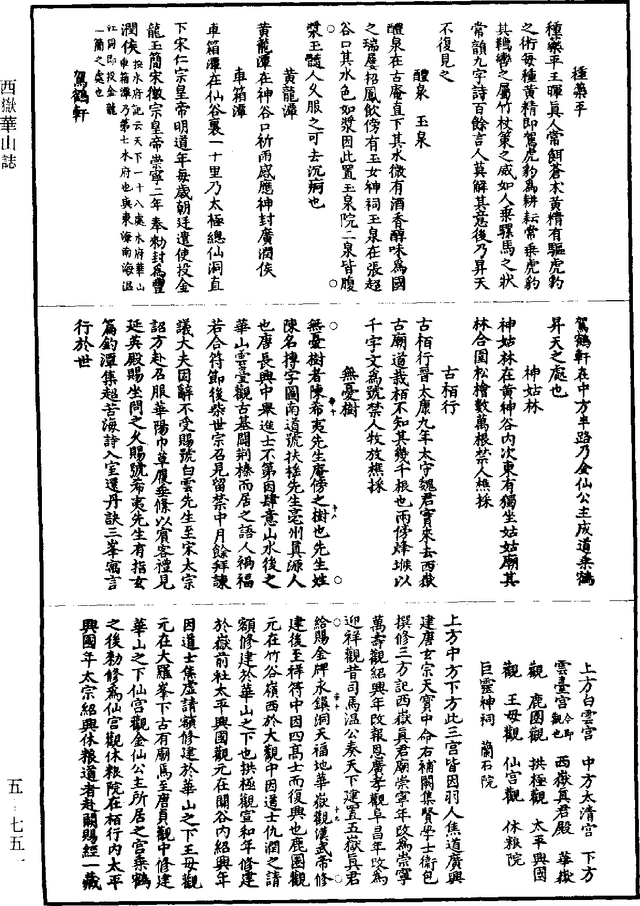 種藥平
種藥平王暉真人常餌蒼朮黃精有驅虎豹
之術每種黃精即駕虎豹爲耕耘常乘虎豹
其鞲轡之屬竹杖策之威如人乘騾馬之狀
常韻九字詩百餘言人莫解其意後乃昇天
不復見之
醴泉 玉泉
醴泉在古庵直下其水微有酒香醇味爲國
之瑞屢招鳳飲傍有玉女神祠玉泉在張超
谷口其水色如漿因此置玉泉院二泉皆腹
漿玉髓人久服之可去沉痾也
黃龍潭
黃龍潭在神谷口祈雨感應神封廣潤侯
車箱潭
車箱潭在仙谷裏一十里乃太極總仙洞直
下宋仁宗皇帝明道年每歲朝廷遣使投金
龍玉簡宋徽宗皇帝崇寧二年奉勑封爲豐
潤侯按水府記云天下一十八處水府華山
車箱潭乃第七水府也與東海南海混
江同即投金龍
一簡之處也
駕鶴軒
駕鶴軒在中方半路乃金仙公主成道乘鶴
昇天之處也
神姑林
神姑林在黃神谷内次東有獨坐姑姑廟其
林合圍松檜數萬根禁人樵採
古栢行
古栢行晉太康九年太守魏君實來去西嶽
古廟道栽栢不知其幾千根也兩傍烽堠以
千字文爲號禁人牧放樵採
無憂樹
無憂樹者陳希夷先生庵傍之樹也先生姓
陳名摶字圖南道號扶搖先生亳州真源人
也唐長興中舉進士不第因肆意山水後之
華山雲臺觀古基闢荆榛而居之語人禍福
若合符節後柴世宗召見留禁中月餘拜諫
議大夫因辭不受賜號白雲先生至宋太宗
詔方赴召服華陽巾草屨垂絛以賓客禮見
延英殿賜坐問之久賜號希夷先生有指玄
篇釣潭集超苦海詩入室還丹訣三峯寓言
行於世
上方白雲宮 中方太清宮 下方
雲臺宮今即觀也 西嶽真君殿 華嶽
觀 鹿圈觀 拱極觀 太平興國
觀 王母觀 仙宮觀 休粮院
巨靈神祠 蘭石院
上方中方下方此三宮皆因羽人焦道廣興
建唐玄宗天寶中命右補闕集賢學士衛包
撰修三方記西嶽真君廟崇寧年改爲崇寧
萬壽觀紹興年改報恩廣孝觀阜昌年改爲
迎祥觀昔司馬温公奏天下建置五嶽真君
給賜金牌永鎮洞天福地華嶽觀漢武帝修
建後至祥符中因四高士而復興也鹿圈觀
元在竹谷嶺西於大觀中因道士仇潤之請
額修建於華山之下也拱極觀宣和年修建
於嶽前社太平興國觀元在開谷内紹興年
因道士焦虛請額修建於華山之下王母觀
元在大羅峯下古有廟焉至唐貞觀中修建
華山之下仙宮觀金仙公主所居之宮乘鶴
之後勑修爲仙宮觀休粮院在栢行内太平
興國年太宗紹興休粮道者赴闕賜經一藏
西嶽華山誌
五·七五一